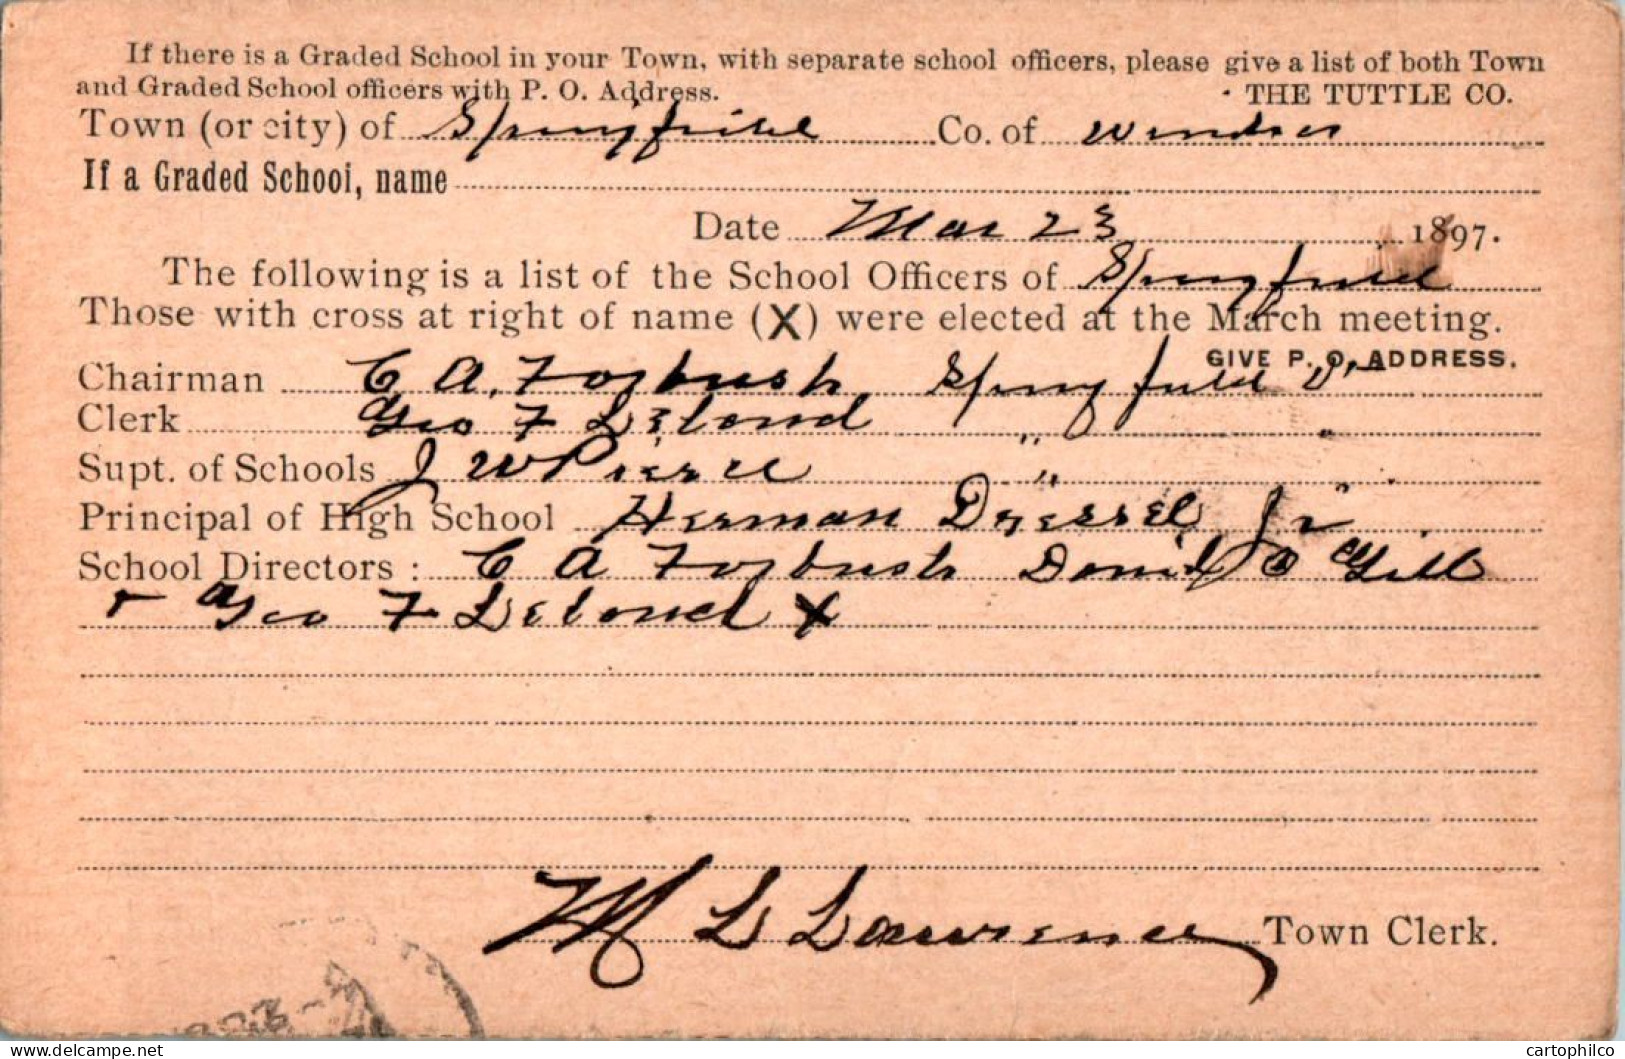 If there is a Graded School in your Town, with separate school officers, please give a list of both Town
and Graded School officers with P. O. Address. THE TUTTLE CO.
Town (or city) of Springfield Co. of Windsor
If a Graded School, name
Date Mar 23 1897.
The following is a list of the School Officers of Springfield
Those with cross at right of name (X) were elected at the March meeting.
GIVE P. O. ADDRESS.
Chairman C A. Forbush Springfield Vt
Clerk Geo F Leland " "
Supt. of Schools J W Pierce "
Principal of High School Herman Dressel Jr
School Directors : C A Forbush Daniel O Gill
+ Geo F Leland X
M L Lawrence Town Clerk.
delcampe.net
cartophilco